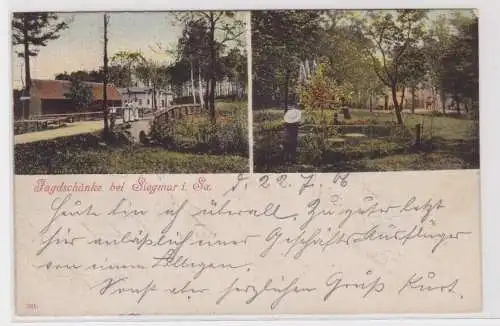 Jagdschänke bei Siegmar i. Sa.
d. 22.7.06
Heute bin ich überall. Zu guter letzt
hier anläßlich eines Geschäfts Ausfluges
von einem
Sonst aber herzlichen Gruß Kurt.